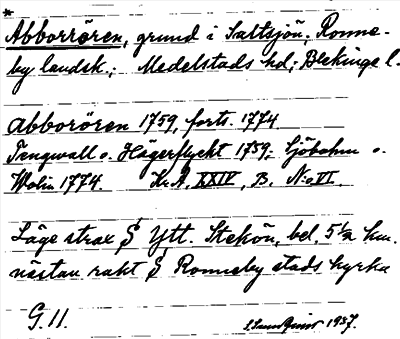 *
Abborrören, grund i Saltsjön, Ronne-
by landsk.; Medelstads hd; Blekinge l.
Abborören 1759, forts. 1774
Tengwall o. Hägerflyckt 1759; Sjöbohm o.
Wolin 1774. Kr. A. XXIV, B. N:o VI.
Läge strax S Ytt. Stekön, bel. 5½ km.
nästan rakt S Ronneby stads kyrka
G. 11. 1937.